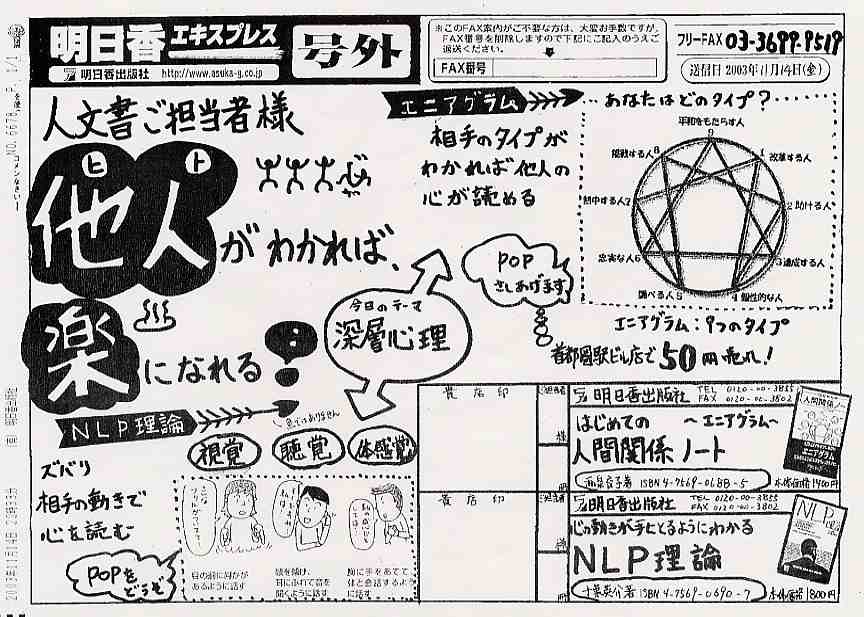 明日香エキスプレス
号外
明日香出版社 http://www.asuka-g.co.jp
※このFAX案内がご不要な方は、大変お手数ですが、
FAX番号を削除しますので下記にご記入のうえご
返送ください。
FAX番号
フリーFAX 03-3699-9519
送信日 2003年11月14日(金)
人文書ご担当者様
ヒト
他人がわかれば、
楽になれる
今日のテーマ
深層心理
エニアグラム
相手のタイプが
わかれば他人の
心が読める
POP
さしあげます
…あなたはどのタイプ?…
平和をもたらす人
9
1 改革する人
2 助ける人
3 達成する人
4 個性的な人
調べる人5
忠実な人6
熱中する人7
挑戦する人8
エニアグラム:9つのタイプ
首都圏駅ビル店で50冊売れ!
NLP理論
色ではありません
視覚
聴覚
体感覚
ズバリ
相手の動きで
心を読む
POPを
どうぞ
目の前に何かが
あるように話す
頭を傾け、
耳にふれて音を
聞くように話す
胸に手をあてて
体と会話するよう
に話す
貴店印
ご担当者
様
冊
明日香出版社 TEL 0120-00-3855
FAX 0120-00-3802
はじめての ~エニアグラム~
人間関係ノート
ISBN4-7569-0688-5
本体価格1400円
貴店印
ご担当者
様
冊
明日香出版社 TEL 0120-00-3855
FAX 0120-00-3802
心の動きが手にとるようにわかる
NLP理論
千葉英介著 ISBN4-7569-0690-7
本体価格1800円
人間関係
エニアグラム
NLP